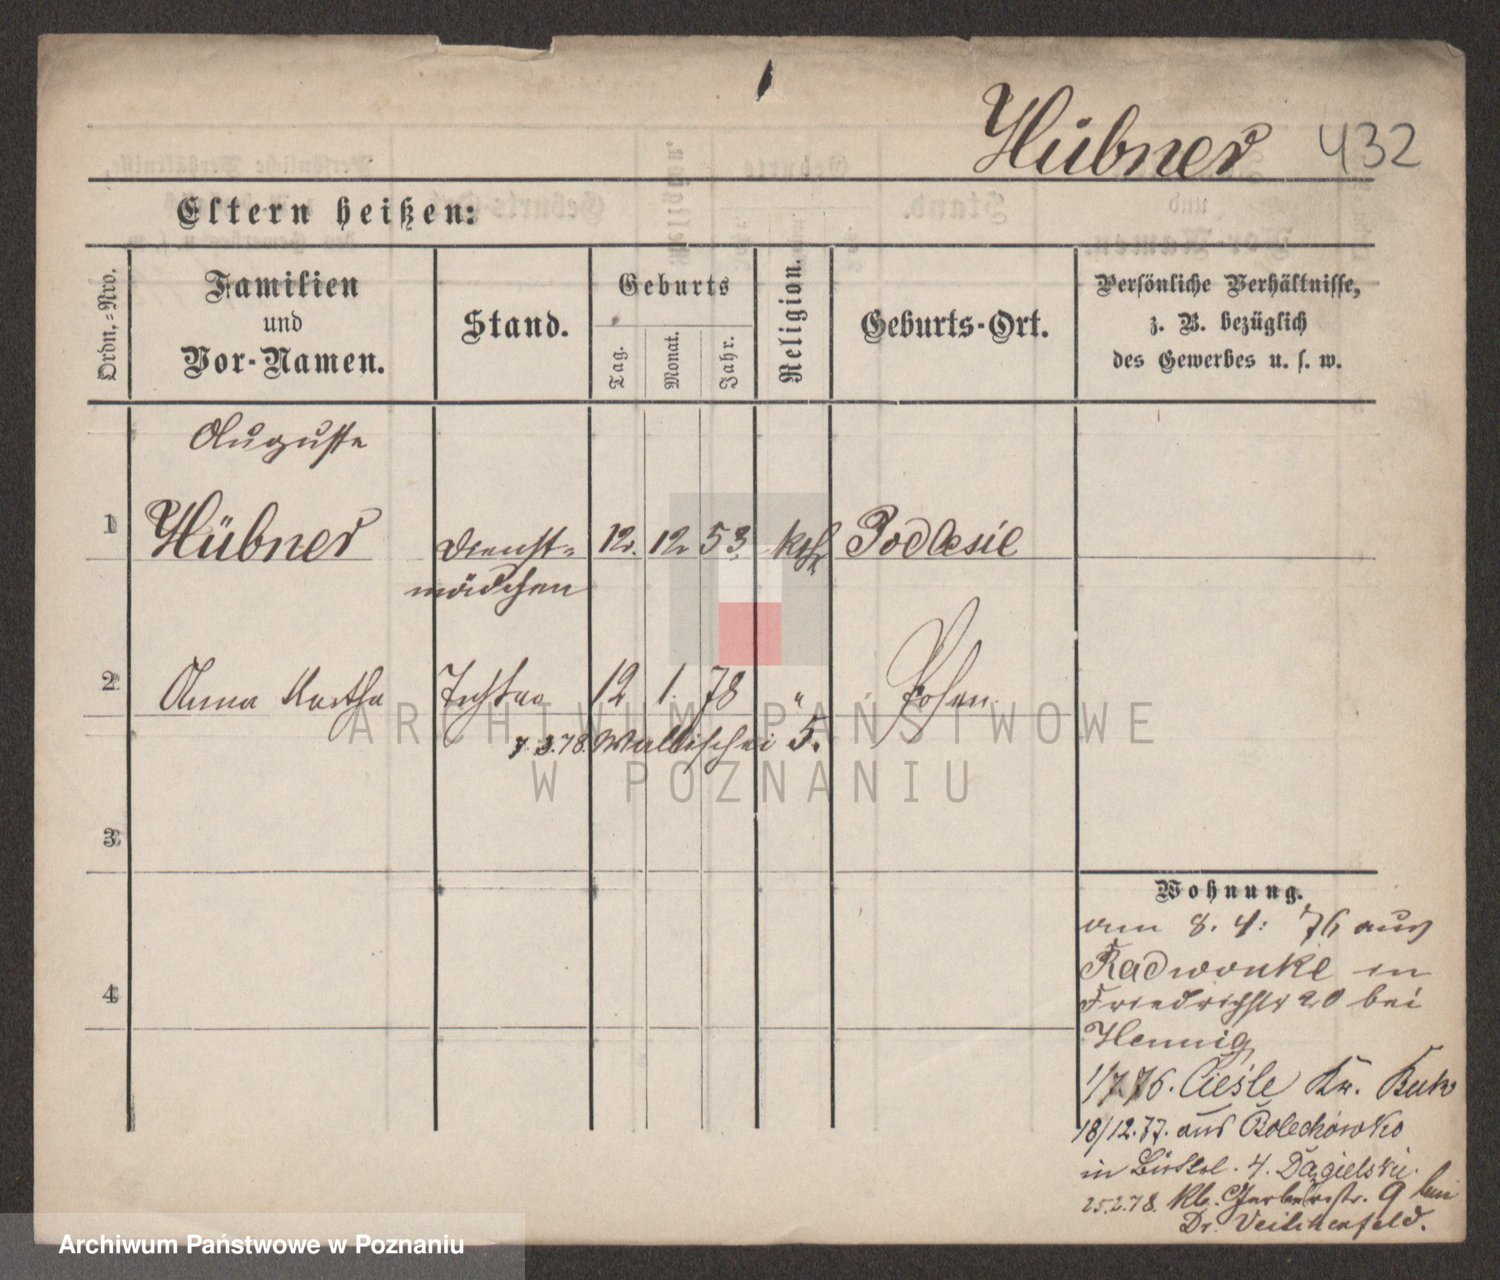 Hübner 432
Eltern heißen:
Ordn.-Nro.
Familien
und
Vor-Namen.
Stand.
Geburts
Tag.
Monat.
Jahr.
Religion.
Geburts-Ort.
Persönliche Verhältnisse,
z. B. bezüglich
des Gewerbes u. s. w.
Auguste
1 Hübner Dienst= 12. 12 53. kth Podlesie
mädchen
2 Anna Martha Tochter 12 1. 78 " Posen
7.3.78. Wallischei 5.
3
4
Wohnung.
am 8. 4. 76 aus
Radwonke in
Friedrichstr 20 bei
Hennig
1/7.76. Cieśle Kr. Buk
18/12.77. aus Bolechowko
in 4.
25.2.78. kl. Gerberstr. 9 bei
Dr. Veilchenfeld.
ARCHIWUM PAŃSTWOWE
W POZNANIU
Archiwum Państwowe w Poznaniu